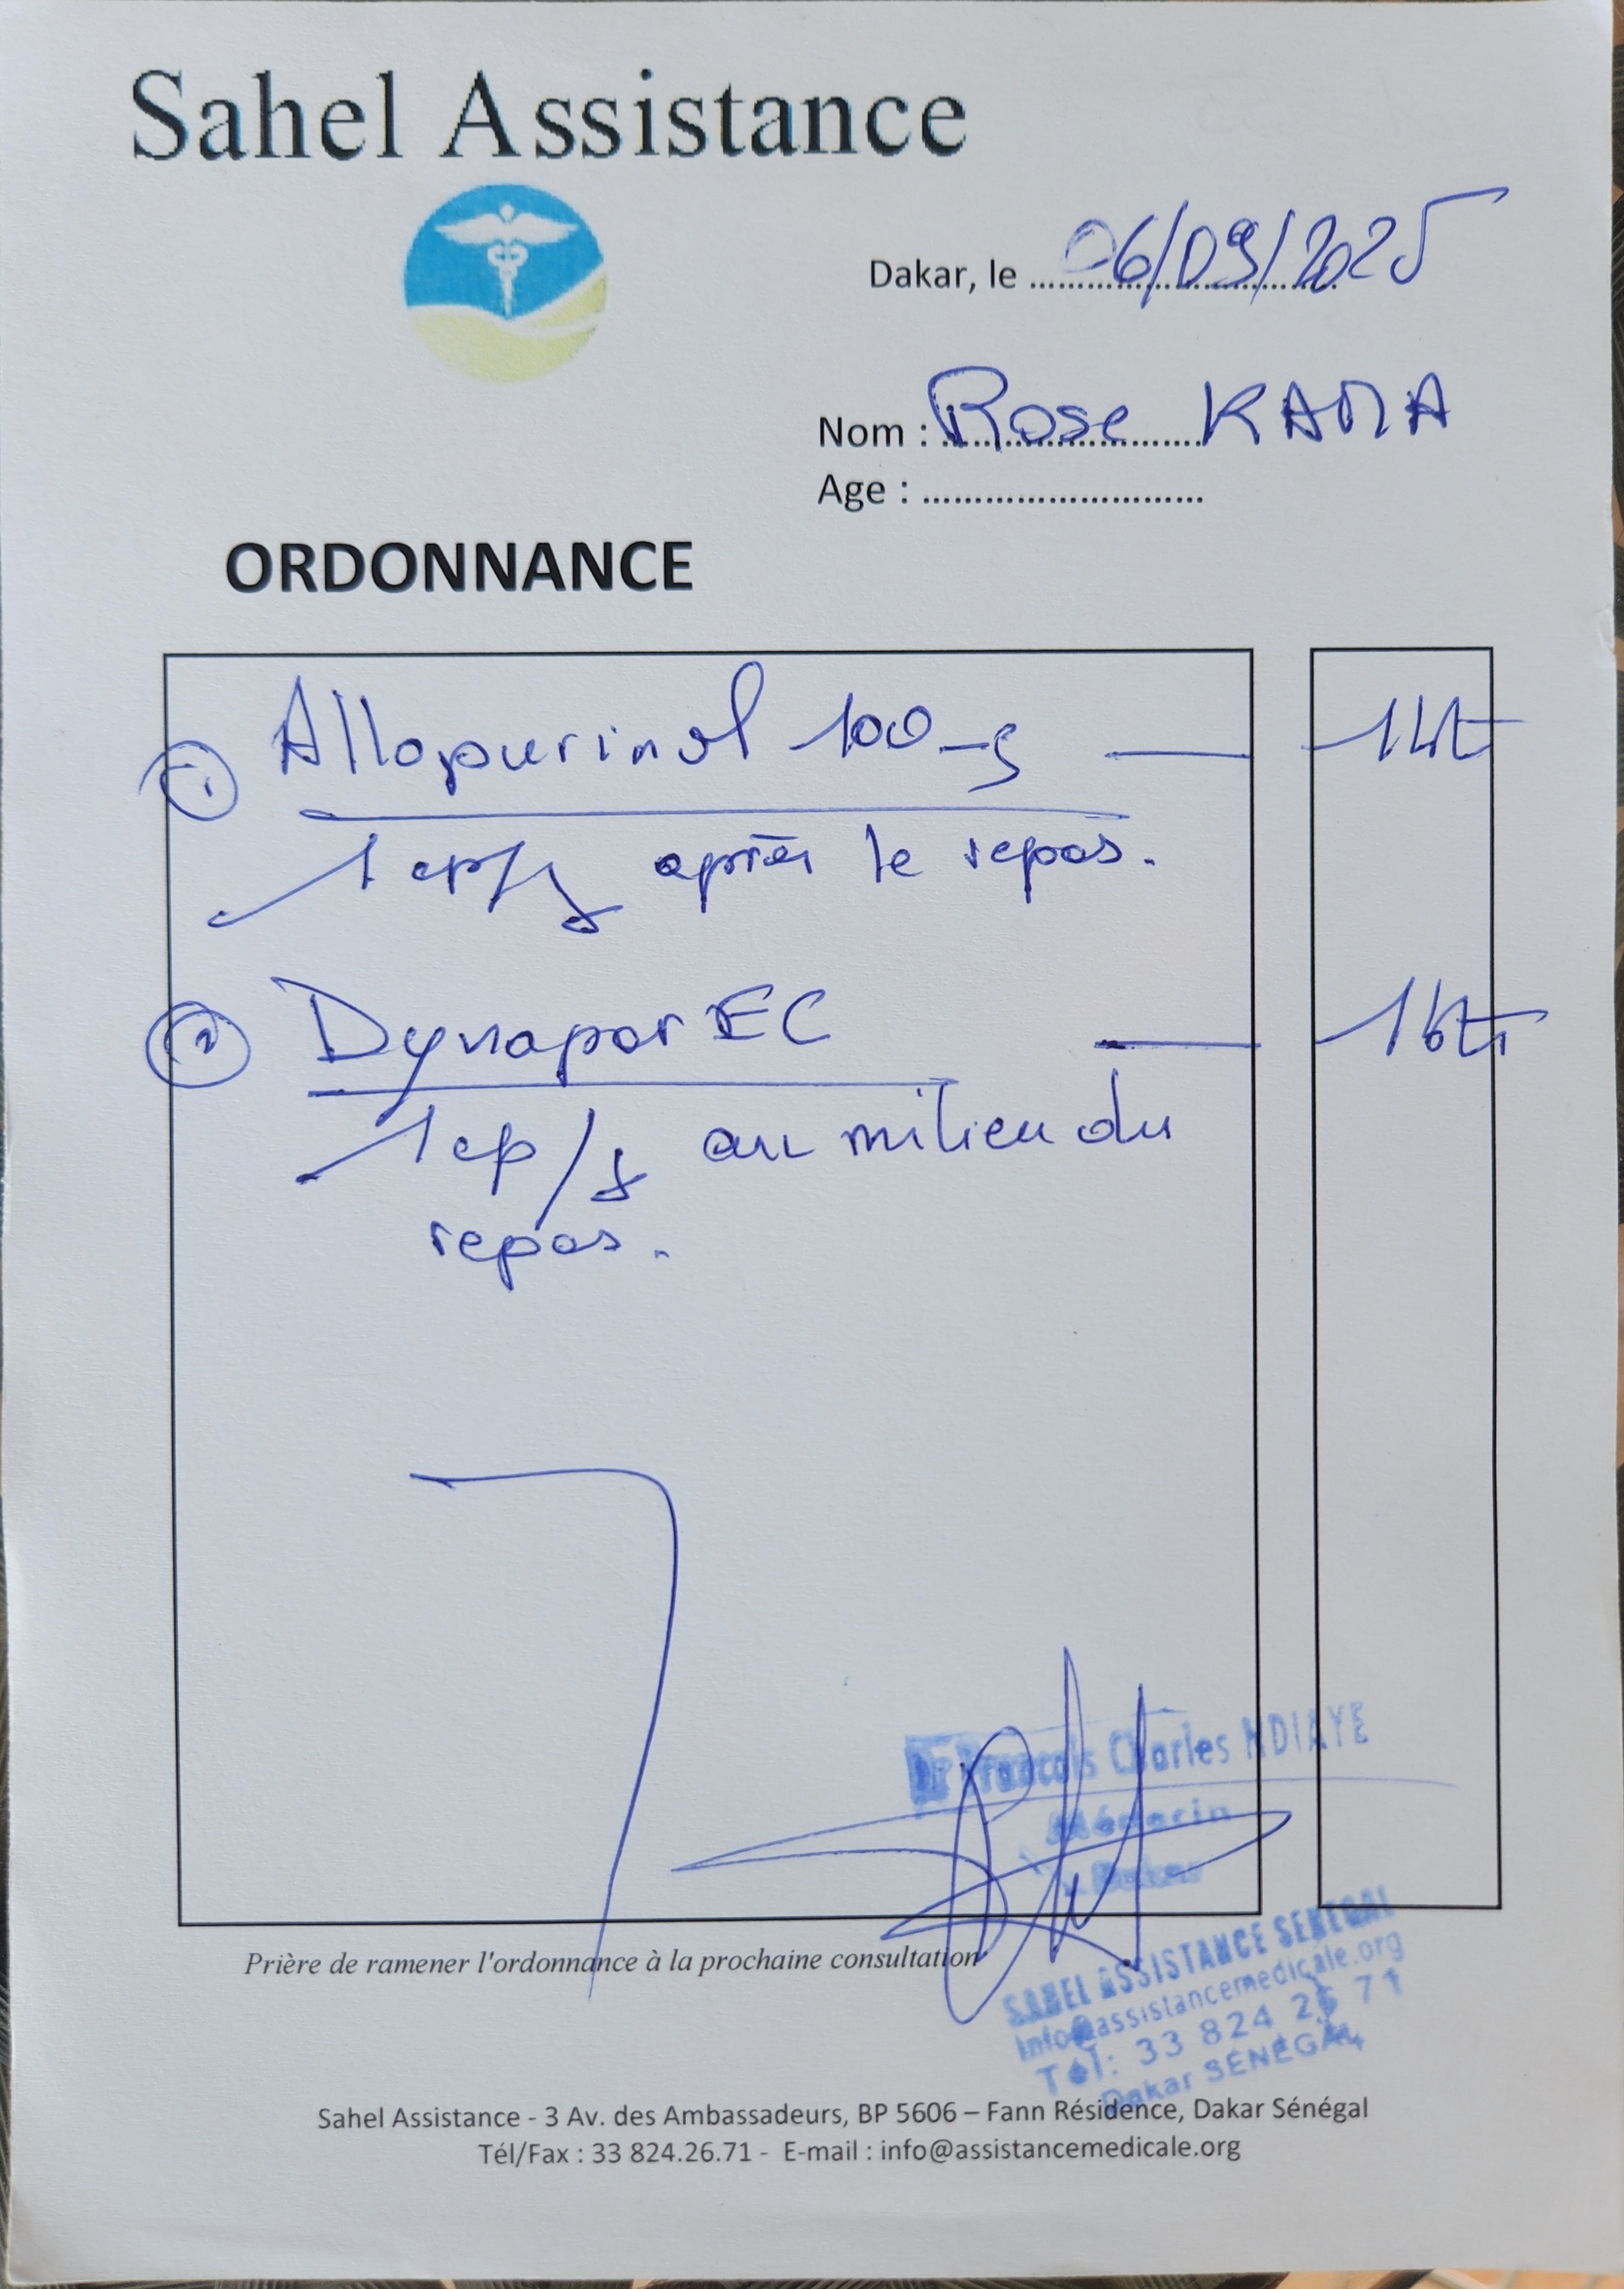 Sahel Assistance
Dakar, le 06/09/2025
Nom : Rose KAMA
Age : ..............................
ORDONNANCE
1 Allopurinol 100mg — 1bt
1 cp/j après le repas.
2 Dynapar EC — 1bt
1 cp/j au milieu du
repas.
Dr François Charles NDIAYE
Médecin
Dakar
SAHEL ASSISTANCE SENEGAL
info@assistancemedicale.org
Tél: 33 824 26 71
Dakar SENEGAL
Prière de ramener l'ordonnance à la prochaine consultation
Sahel Assistance - 3 Av. des Ambassadeurs, BP 5606 – Fann Résidence, Dakar Sénégal
Tél/Fax : 33 824.26.71 - E-mail : info@assistancemedicale.org